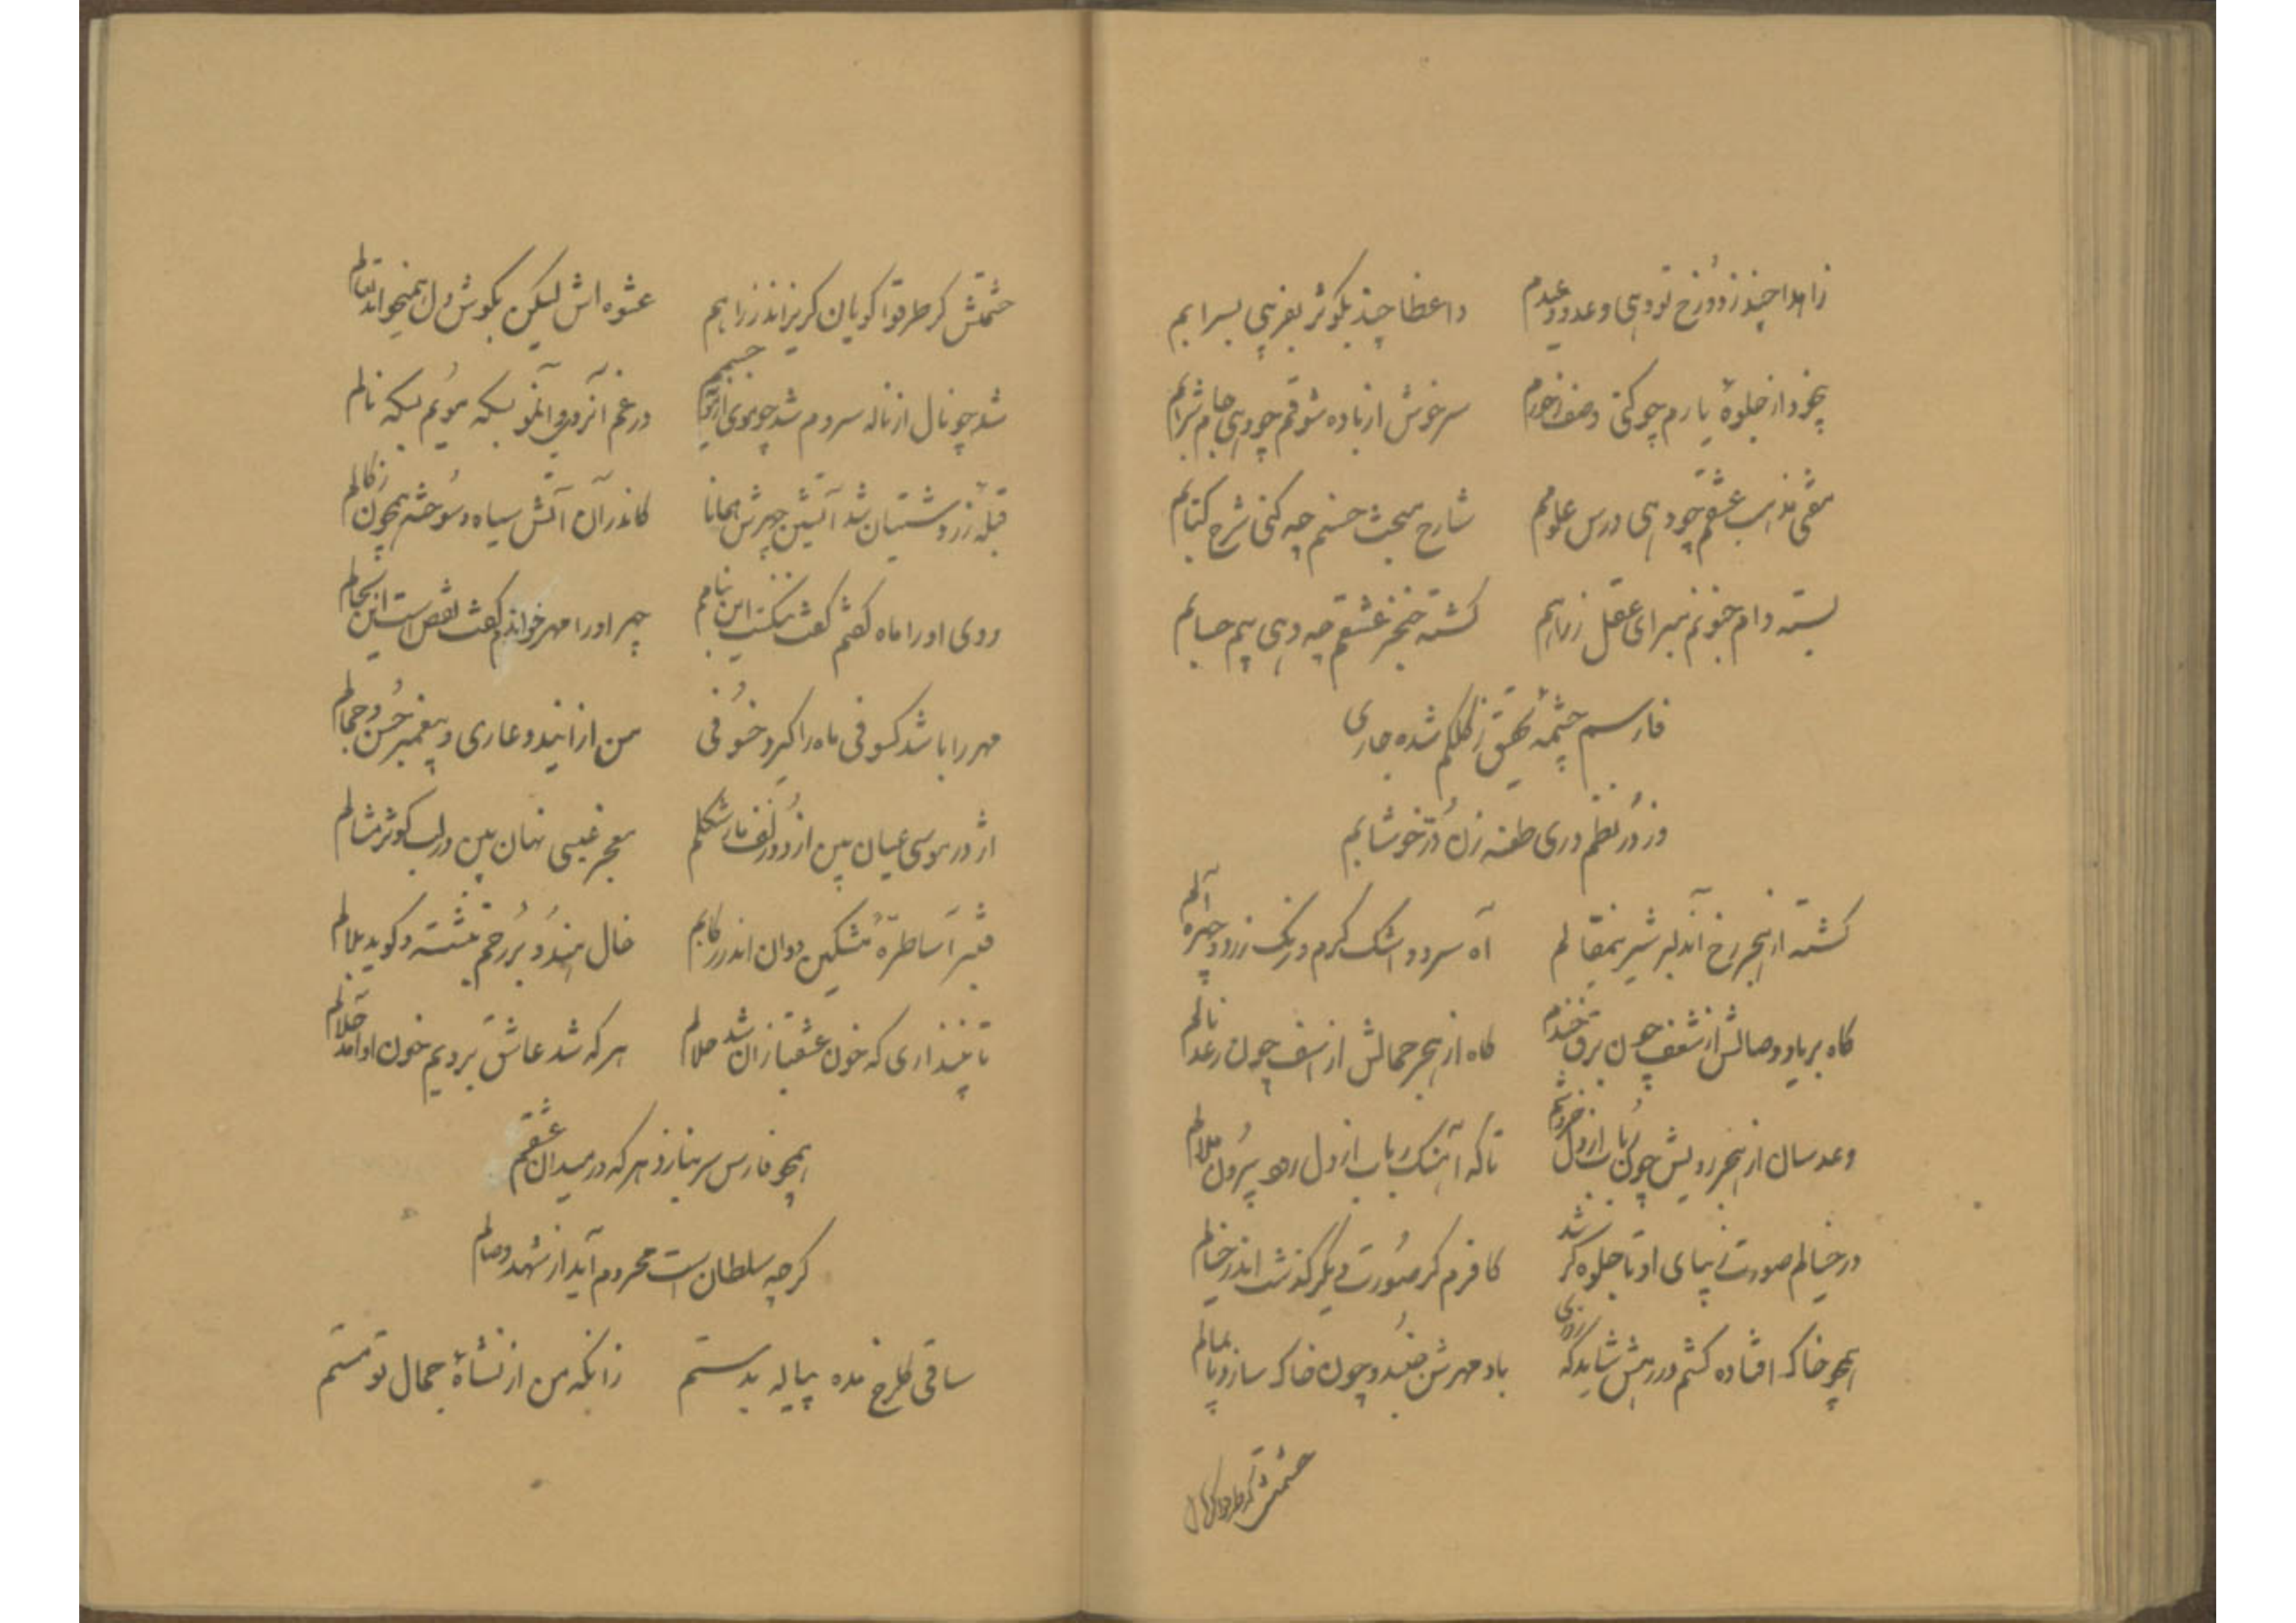 زاهدا چند ز دوزخ تو دهی وعد وعیدم    واعظا چند بکوثر بفریبی بسرابم
بیخود از جلوهٔ یارم چو کنی وصف ز حورم    سرخوش از باده شوقم چو دهی جام شرابم
مفتی مذهب عشقم چو دهی درس علومم    شارح مبحث حسنم چه کنی شرح کتابم
بسته دام جنونم مبر ای عقل ز راهم    کشته خنجر عشقم چه دهی بیم حسابم
فارسم چشمه تحقیق ز کلکم شده جاری
وز در نظم دری طعنه زن در خوشابم
کشته از هجر رخ آندلبر شیرینمقالم    آه سرد و اشک کرم و رنک زرد و چهره آلم
کاه بر یاد وصالش از شغف چون برق خندم    کاه از هجر جمالش از اسف چون رعد نالم
وعد سان از هجر رویش چون رباب از دل خروشم    تا که آهنک رباب از دل برد بیرون ملالم
در خیالم صورت زیبای او تا جلوه کر شد    کافرم کر صورت دیکر کذشت اندر خیالم
همچو خاک افتاده کشتم در رهش شاید که روزی    باد مهرش جنبد و چون خاک سازد پایمالم
چشمش کر طرقوا کویان
چشمش کر طرقوا کویان کریزاند ز راهم    عشوه اش لیکن بکوش دل همیخواند تعالم
شد چو نال از ناله سردم شد چو موی از مویه جسمم    در غم آنروی و آنمو بسکه مویم بسکه نالم
قبله زردشتیان شد آتشین چهرش همانا    کاندر آن آتش سیاه و سوخته همچون زکالم
روی او را ماه کفتم کفت ننکست این بنامم    چهر او را مهر خواندم کفت نقص است این بحالم
مهر را باشد کسوفی ماه را کیرد خسوفی    من از ایندو عاری و پیغمبر حسن و جمالم
اژدر موسی عیان بین از دو زلف مار شکلم    معجز عیسی نهان بین در لب کوثر مثالم
قنبر آسا طرهٔ مشکین دوان اندر رکابم    خال هندو بر رخم بنشسته و کوید بلالم
تا نپنداری که خون عشقبازان شد حلالم    هر که شد عاشق برویم خون او آمد حلالم
همچو فارس سر ببازد هر که در میدان عشقم
کر چه سلطان است محروم آید از شهد وصالم
ساقی کلرخ مده پیاله بدستم    زانکه من از نشأهٔ جمال تو مستم